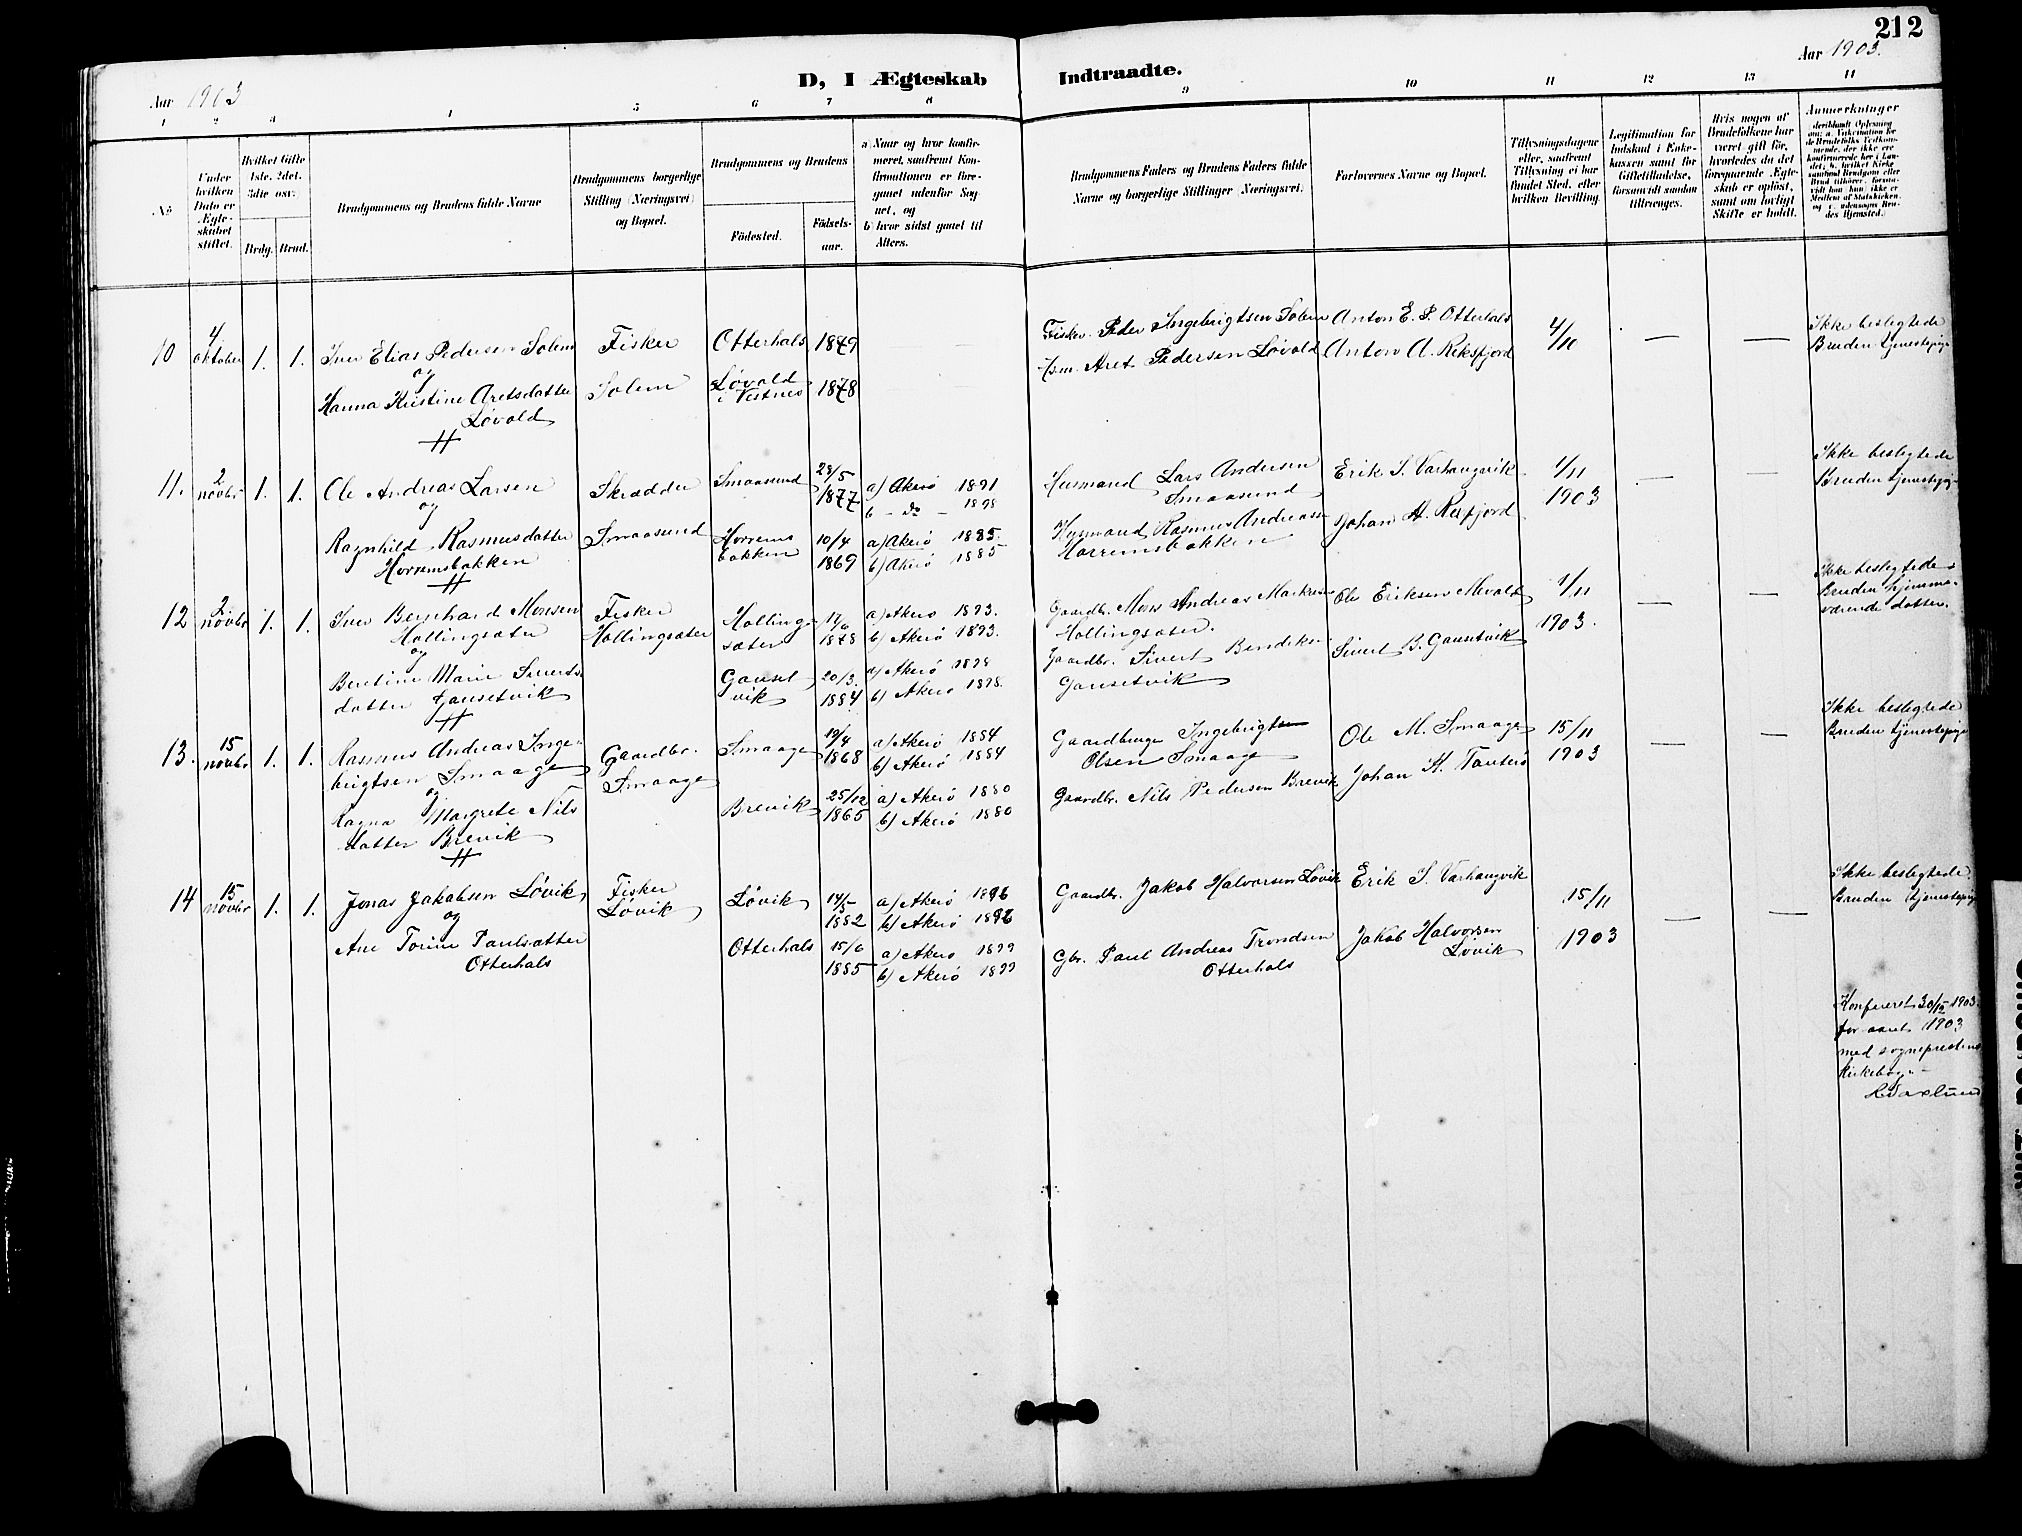 212
Aar 1903
D, I Ægteskab Indtraadte.
Aar 1903.
1 2 3 4 5 6 7 8 9 10 11 12 13 14
No
Under
hvilken
Dato er
Ægte-
skabet
stiftet.
Hvilket Gifte
1ste, 2det,
3die osv.
Brdg. Brud.
Brudgommens og Brudens fulde Navne
Brudgommens borgerlige
Stilling (Næringsvei)
og Bopæl.
Brudgommens og Brudens
Födested.
Födsels-
aar.
a) Naar og hvor konfir-
meret, saafremt Kon-
firmationen er fore-
gaaet udenfor Sog-
net, og
b) hvor sidst gaaet til
Alters.
Brudgommens Faders og Brudens Faders fulde
Navne og borgerlige Stillinger (Næringsvei)
Forlovernes Navne og Bopæl.
Tillysningsdagene
eller, saafremt
Tillysning ei har
fundet Sted, efter
hvilken Bevilling.
Legitimation for
Indskud i Enke-
kassen samt for
Giftetilladelse,
forsaavidt saadan
tiltrænges.
Hvis nogen af
Brudefolkene har
været gift för,
hvorledes da det
foregaaende Ægte-
skab er oplöst,
samt om lovligt
Skifte er holdt.
Anmerkninger
deriblandt Oplysning
om: a. Vakcination for
de Brudefolks Vedkom-
mende, der ikke ere
konfirmerede her i Lan-
det; b. hvilket Kirke-
samfund Brudgom eller
Brud tilhörer, forsaa-
vidt han (hun) ikke er
Medlem af Statskirken,
og c. udensogns Bru-
des Hjemsted.)
10 4/oktober 1. 1. Iver Elias Pedersen Solem
og
Hanna Kristine Aretsdatter
Løvold
Fisker
Solem
Otterhals 1879
Løvold
i Vestnes 1878
Fisker Peder Ingebrigtsen Solem
Hsm. Aret Pedersen Løvold
Anton E. P. Otterhals
Anton A. Reksfjord
4/11
— —
Ikke beslegtede
Bruden tjenestepige
11. 2 novbr 1. 1. Ole Andreas Larsen
og
Ragnhild Rasmusdatter
Horremsbakken
Skrædder
Smaasund
Smaasund 23/5
1877
a) Akerø 1891
b - do - 1898
Horrems
bakken 10/4
1869
a) Akerø 1885.
b) Akerø 1885
Husmand Lars Andersen
Smaasund
Husmand Rasmus Andreassen
Horremsbakken
Erik S. Varhaugvik
Johan A. Røfjord
1/11
1903
— —
Ikke beslegtede
Bruden tjenestepige
12 2 novbr 1. 1. Iver Bernhard Monsen
Hollingsæter
og
Beretine Marie Siverts
datter Gausetvik
Fisker
Hollingsæter
Hollings-
sæter
1878
a) Akerø 1893.
b) Akerø 1893.
Gauset
vik 20/3
1884
a) Akerø 1898
b) Akerø 1898.
Gaardbr. Mons Andreas Markussen
Hollingsæter.
Gaardbr. Sivert Bendiksen
Gausetvik
Ole Eriksen Mevold
Sivert B. Gausetvik
1/11
1903.
— —
Ikke beslegtede
Bruden hjemme-
værende datter.
13. 15 novbr 1. 1. Rasmus Andreas Inge-
brigtsen Smaage
og
Ragna Margrete Nils
datter Brevik
Gaardbr.
Smaage
Smaage 19/4
1868
a) Akerø 1884
b) Akerø 1884
Brevik 25/12
1865
a) Akerø 1880
b) Akerø 1880
Gaardbruger Ingebrigt
Olsen Smaage
Gaardbr. Nils Pedersen Brevik
Ole M. Smaage
Johan K. Tauterø
15/11
1903
— —
Ikke beslegtede
Bruden tjenestepige
14 15 novbr 1. 1. Jonas Jakobsen Løvik
og
Ane Torine Paulsdatter
Otterhals
Fisker
Løvik
Løvik 14/5
1882
a) Akerø 1896
b) Akerø 1896
Otterhals 15/6
1885
a) Akerø 1899
b) Akerø 1899
Gaardbr. Jakob Halvorsen Løvik
Gbr. Paul Andreas Trondsen
Otterhals
Erik S. Varhaugvik
Jakob Halvorsen
Løvik
15/11
1903
— —
Ikke beslegtede
Bruden tjenestepige
Konfereret 30/12 1903.
for aaret 1903
med sogneprestens
kirkebog